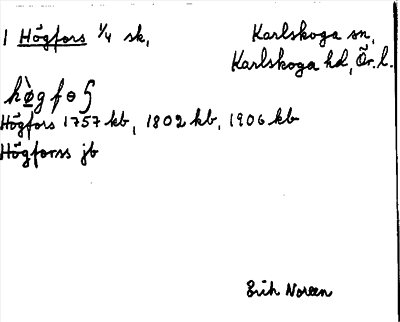 1 Högfors 1/4 sk,
Karlskoga sn,
Karlskoga hd, Ör. l.
hø̀gfɵʂ
Högfors 1757 kb, 1802 kb, 1906 kb
Högforss jb
Erik Noreen